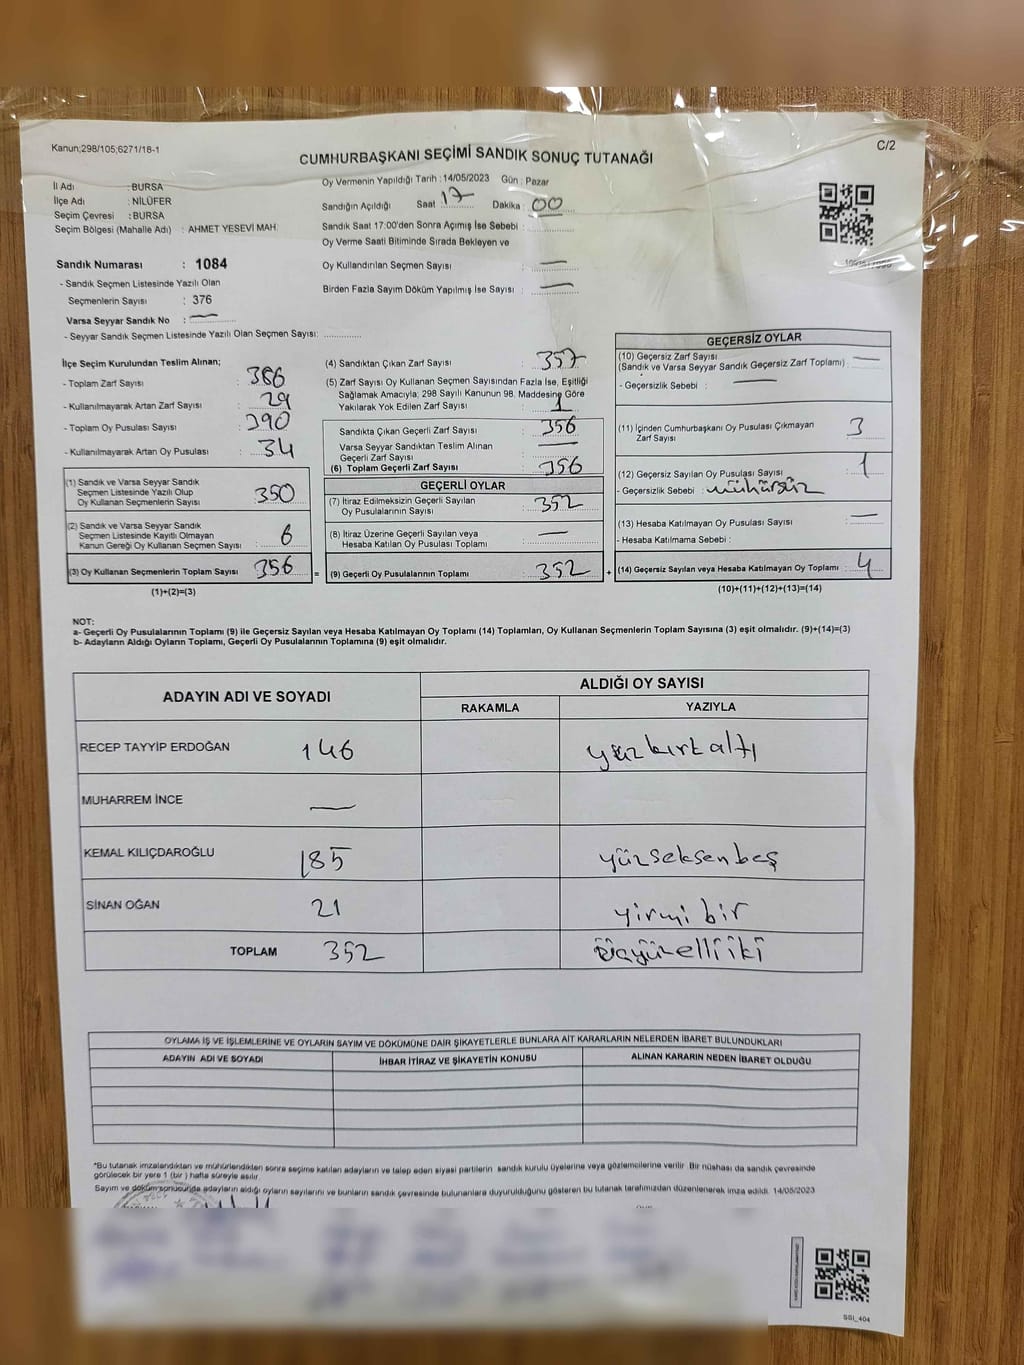 Kanun;298/105;6271/18-1
C/2
CUMHURBAŞKANI SEÇİMİ SANDIK SONUÇ TUTANAĞI
İl Adı : BURSA
İlçe Adı : NİLÜFER
Seçim Çevresi : BURSA
Seçim Bölgesi (Mahalle Adı) : AHMET YESEVİ MAH.
Oy Vermenin Yapıldığı Tarih : 14/05/2023 Gün : Pazar
Sandığın Açıldığı Saat 17 Dakika : 00
Sandık Saat 17:00'den Sonra Açımış İse Sebebi :
Oy Verme Saati Bitiminde Sırada Bekleyen ve
Oy Kullandırılan Seçmen Sayısı : —
Birden Fazla Sayım Döküm Yapılmış İse Sayısı : —
Sandık Numarası : 1084
- Sandık Seçmen Listesinde Yazılı Olan
Seçmenlerin Sayısı : 376
Varsa Seyyar Sandık No : —
- Seyyar Sandık Seçmen Listesinde Yazılı Olan Seçmen Sayısı:
İlçe Seçim Kurulundan Teslim Alınan;
- Toplam Zarf Sayısı : 386
- Kullanılmayarak Artan Zarf Sayısı : 29
- Toplam Oy Pusulası Sayısı : 390
- Kullanılmayarak Artan Oy Pusulası : 34
(1) Sandık ve Varsa Seyyar Sandık
Seçmen Listesinde Yazılı Olup
Oy Kullanan Seçmenlerin Sayısı : 350
(2) Sandık ve Varsa Seyyar Sandık
Seçmen Listesinde Kayıtlı Olmayan
Kanun Gereği Oy Kullanan Seçmen Sayısı : 6
(3) Oy Kullanan Seçmenlerin Toplam Sayısı : 356 =
(1)+(2)=(3)
(4) Sandıktan Çıkan Zarf Sayısı : 357
(5) Zarf Sayısı Oy Kullanan Seçmen Sayısından Fazla İse, Eşitliği
Sağlamak Amacıyla; 298 Sayılı Kanunun 98. Maddesine Göre
Yakılarak Yok Edilen Zarf Sayısı : 1
Sandıkta Çıkan Geçerli Zarf Sayısı : 356
Varsa Seyyar Sandıktan Teslim Alınan
Geçerli Zarf Sayısı : —
(6) Toplam Geçerli Zarf Sayısı : 356
GEÇERLİ OYLAR
(7) İtiraz Edilmeksizin Geçerli Sayılan
Oy Pusulalarının Sayısı : 352
(8) İtiraz Üzerine Geçerli Sayılan veya
Hesaba Katılan Oy Pusulası Toplamı : —
(9) Geçerli Oy Pusulalarının Toplamı : 352 +
GEÇERSİZ OYLAR
(10) Geçersiz Zarf Sayısı
(Sandık ve Varsa Seyyar Sandık Geçersiz Zarf Toplamı) : —
- Geçersizlik Sebebi : —
(11) İçinden Cumhurbaşkanı Oy Pusulası Çıkmayan
Zarf Sayısı : 3
(12) Geçersiz Sayılan Oy Pusulası Sayısı : 1
- Geçersizlik Sebebi : mühürsüz
(13) Hesaba Katılmayan Oy Pusulası Sayısı : —
- Hesaba Katılmama Sebebi :
(14) Geçersiz Sayılan veya Hesaba Katılmayan Oy Toplamı : 4
(10)+(11)+(12)+(13)=(14)
NOT:
a- Geçerli Oy Pusulalarının Toplamı (9) ile Geçersiz Sayılan veya Hesaba Katılmayan Oy Toplamı (14) Toplamları, Oy Kullanan Seçmenlerin Toplam Sayısına (3) eşit olmalıdır. (9)+(14)=(3)
b- Adayların Aldığı Oyların Toplamı, Geçerli Oy Pusulalarının Toplamına (9) eşit olmalıdır.
ADAYIN ADI VE SOYADI
ALDIĞI OY SAYISI
RAKAMLA YAZIYLA
RECEP TAYYİP ERDOĞAN 146 yüz kırk altı
MUHARREM İNCE —
KEMAL KILIÇDAROĞLU 185 yüzseksenbeş
SİNAN OĞAN 21 yirmi bir
TOPLAM 352 üçyüzelliiki
OYLAMA İŞ VE İŞLEMLERİNE VE OYLARIN SAYIM VE DÖKÜMÜNE DAİR ŞİKAYETLERLE BUNLARA AİT KARARLARIN NELERDEN İBARET BULUNDUKLARI
ADAYIN ADI VE SOYADI İHBAR İTİRAZ VE ŞİKAYETİN KONUSU ALINAN KARARIN NEDEN İBARET OLDUĞU
*Bu tutanak imzalandıktan ve mühürlendikten sonra seçime katılan adayların ve talep eden siyasi partilerin sandık kurulu üyelerine veya gözlemcilerine verilir. Bir nüshası da sandık çevresinde
görülecek bir yere 1 (bir) hafta süreyle asılır.
Sayım ve döküm sonucunda adayların aldığı oyların sayılarını ve bunların sandık çevresinde bulunanlara duyurulduğunu gösteren bu tutanak tarafımızdan düzenlenerek imza edildi. 14/05/2023
SSİ_404